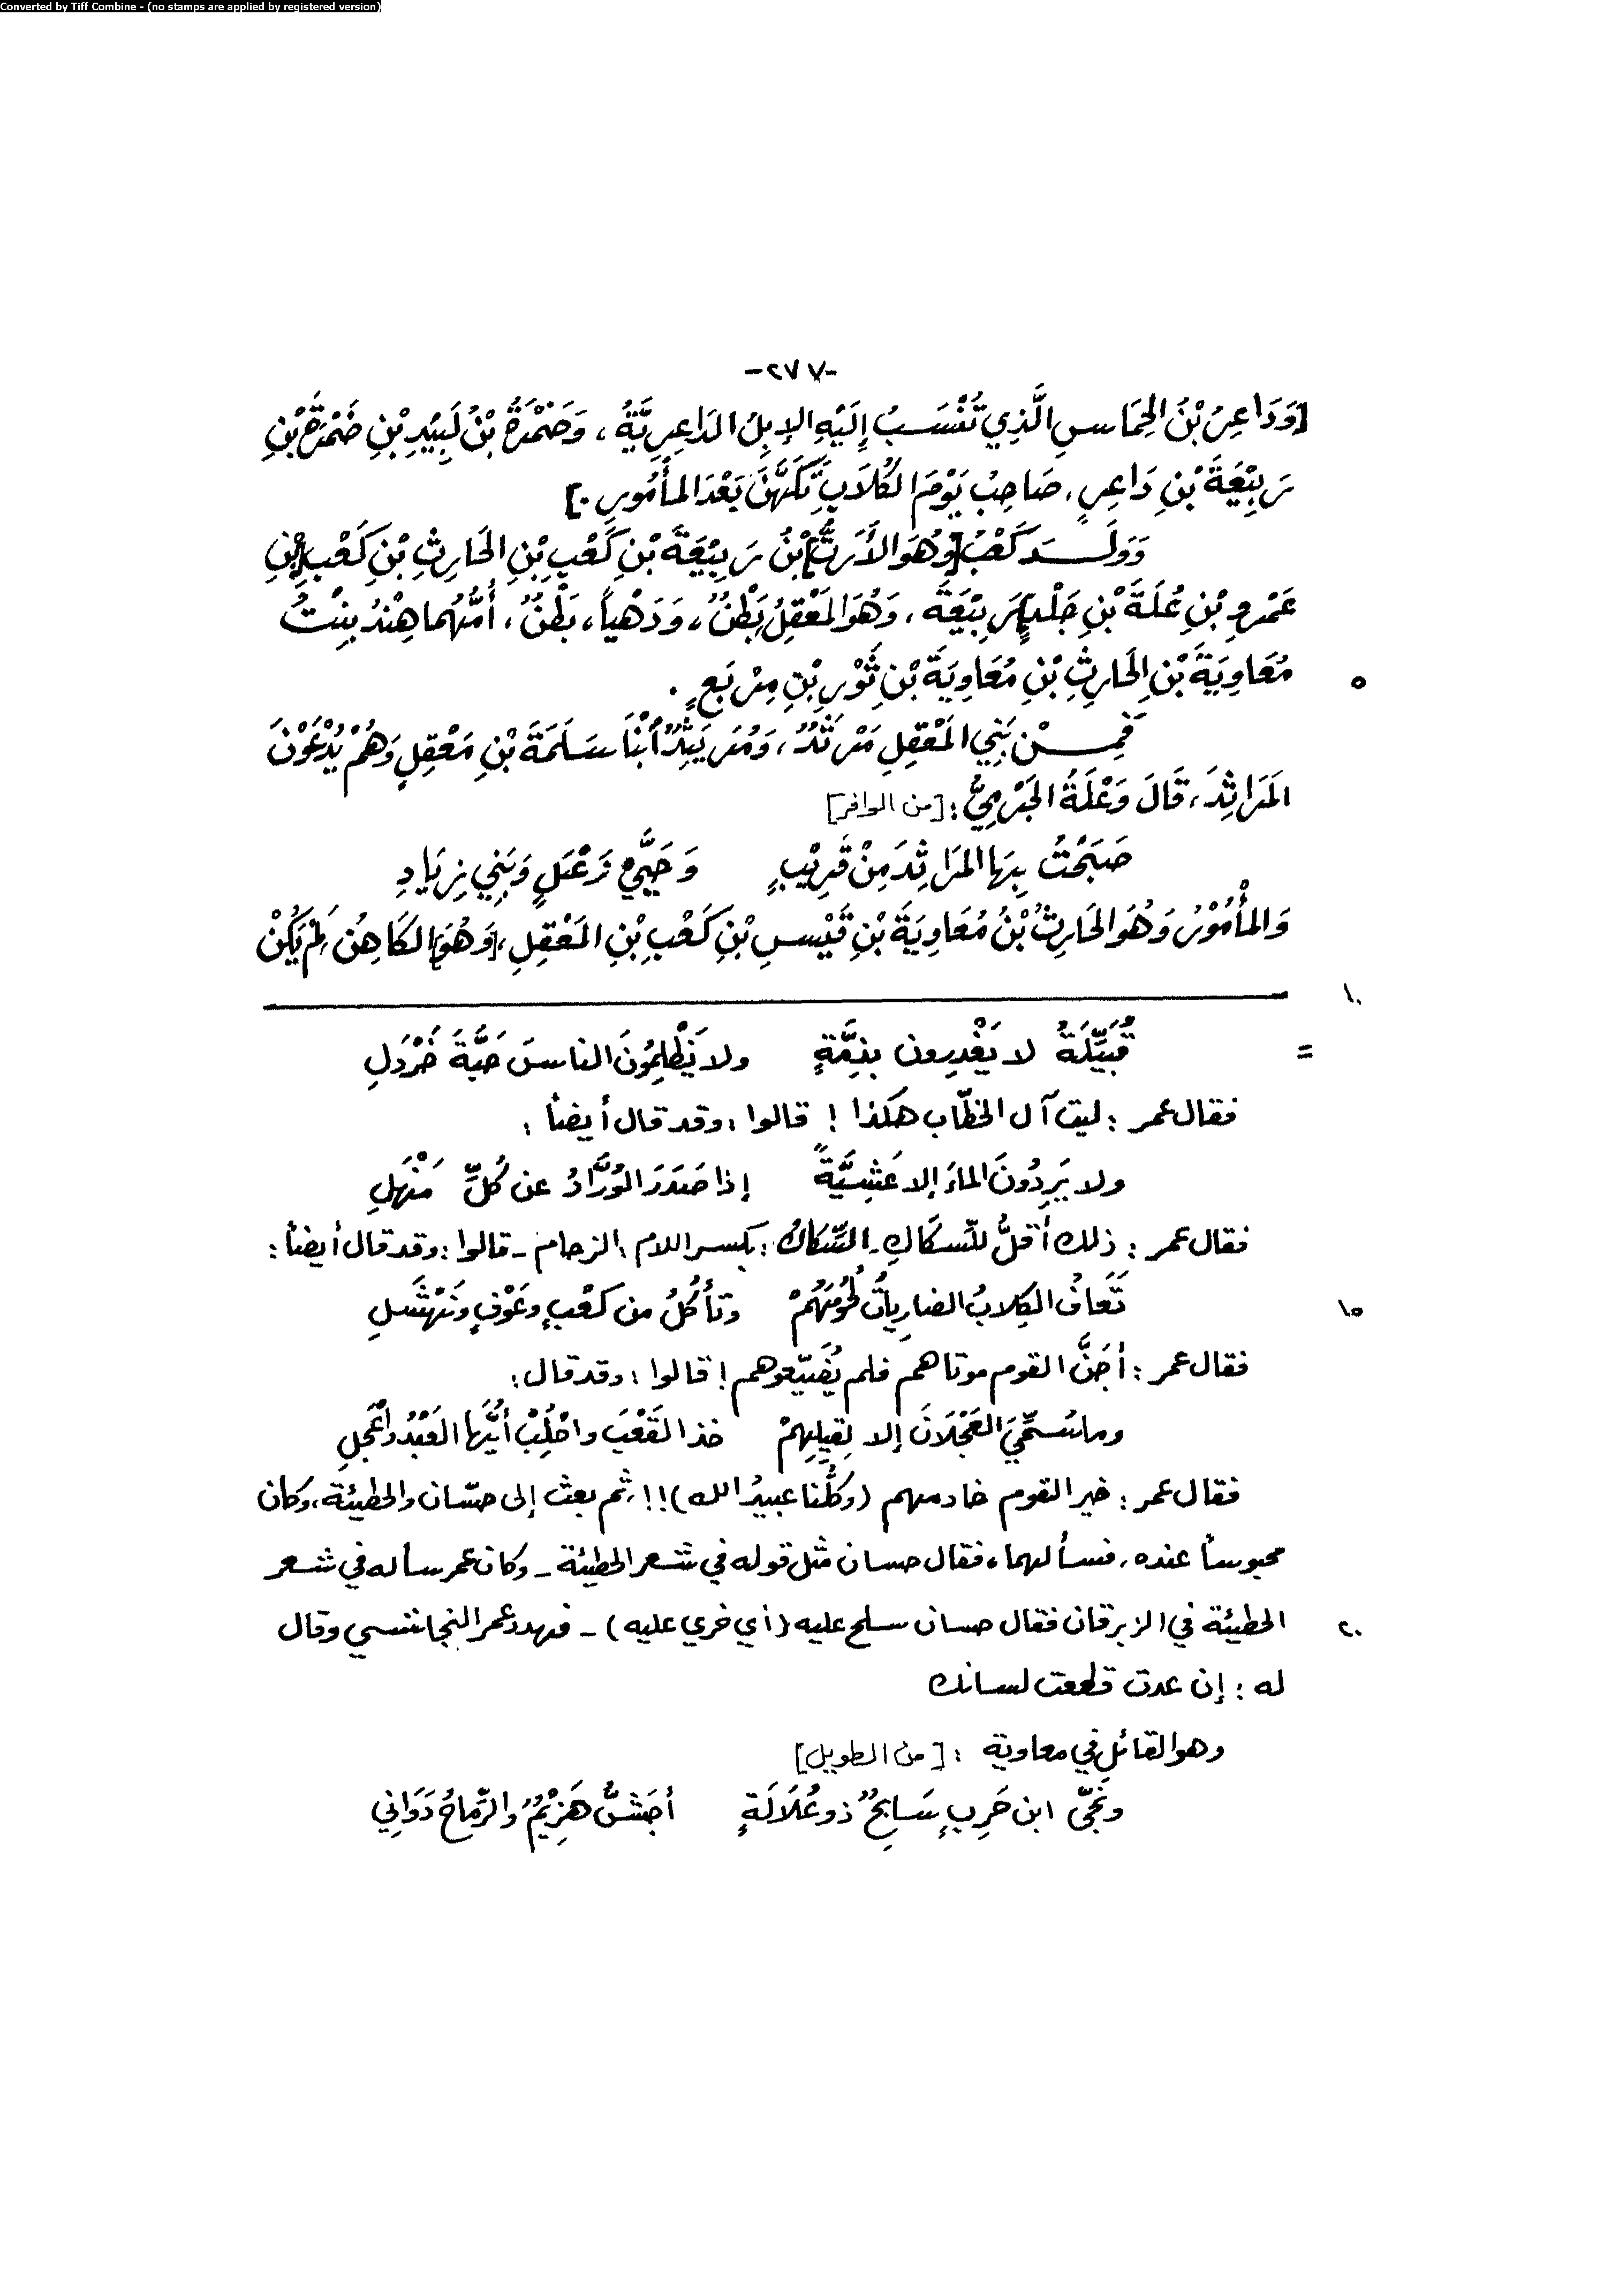 Converted by Tiff Combine - (no stamps are applied by registered version)
-٢٧٧-
[وَدَاعِرُ بْنُ الحِمَاسِ الَّذِي تُنْسَبُ إِلَيْهِ الإِبِلُ الدَاعِرِيَّةُ، وَضَمْرَةُ بْنُ لَبِيْدِ بْنِ ضَمْرَةَ بْنِ
رَبِيْعَةَ بْنِ دَاعِرٍ، صَاحِبُ يَوْمَ الكُلَابِ تَكَهَّنَ بَعْدَ المأْمُورِ.]
وَوَلَدَ كَعْبُ [وَهُوَ الأَرَتُّ] بْنُ رَبِيْعَةَ بْنِ كَعْبِ بْنِ الحَارِثِ بْنِ كَعْبِ [بْنِ
عَمْرِو بْنِ عُلَةَ بْنِ جَلْدٍ] رَبِيْعَةَ، وَهُوَ المَعْقِلُ بَطْنٌ، وَدَهْياً، بَطْنٌ، أُمُّهُما هِنْدُ بِنْتُ
مُعَاوِيَةَ بْنِ الحَارِثِ بْنِ مُعَاوِيَةَ بْنِ ثَوْرِ بْنِ مِرْبَعٍ.
٥
فَمِنْ بَنِي المَعْقِلِ مَرْثَدٌ، وَمُرَيْثِدٌ أبْنَا سَلَمَةَ بْنِ مَعْقِلٍ وَهُمْ يُدْعَوْنَ
المَرَاثِدَ، قَالَ وَعْلَةُ الجَرْمِيُّ: [من الوافر]
صَبَحْتُ بِهَا المَرَاثِدَ مِنْ قَرِيْبٍ وَحَيَّيْ زَعْبَلٍ وَبَنِي زِيَادِ
وَالمأْمُوْرُ وَهُوَ الحَارِثُ بْنُ مُعَاوِيَةَ بْنِ قَيْسِ بْنِ كَعْبِ بْنِ المَعْقِلِ، [وَهُوَ] الكَاهِنُ، لَمْ يَكُنْ
١٠
= قُبَيِّلَةٌ لا يَغْدِرون بذِمَّةٍ ولا يَظْلِمُونَ الناسَ حَبَّةَ خَرْدَلِ
فقال عمر: ليت آل الخطّاب هكذا! قالوا: وقد قال أيضاً:
ولا يَرِدُونَ الماءَ إلا عَشِيَّةً إذا صَدَرَ الوُرَّادُ عن كُلِّ مَنْهَلِ
فقال عمر: ذلك أقلُّ للِّسكَاكِ - السِّكاكُ: بكسر اللام: الزحام - قالوا: وقد قال أيضاً:
تَعَافُ الكِلابُ الضارياتُ لُحُومَهُمْ وتأكُلُ من كَعْبٍ وعَوْفٍ ونَهْشَلِ
١٥
فقال عمر: أجَنَّ القوم موتاهم فلم يُضَيّعوهم! قالوا: وقد قال:
وما سُمِّيَ العَجْلَانَ إلا لِقِيلِهِمْ خذ القَعْبَ واحْلُبْ أيُّها العَبْدُ واعْجَلِ
فقال عمر: خير القوم خادمهم (وكلُّنا عبيدُ الله)!! ثم بعث إلى حسّان والحطيئة، وكان
محبوساً عنده، فسألهما، فقال حسان مثل قوله في شعر الحطيئة - وكان عمر سأله في شعر
الحطيئة في الزبرقان فقال حسان سلح عليه (أي خري عليه) - فهدد عمر النجاشي وقال
٢٠
له: إن عدت قطعت لسانك
وهو القائل في معاوية: [من الطويل]
ونَجّى ابن حَرِبٍ سَابِحٌ ذو عُلَالَةٍ أجَشُّ هَزِيْمٌ والرِّماحُ دَوَانِي